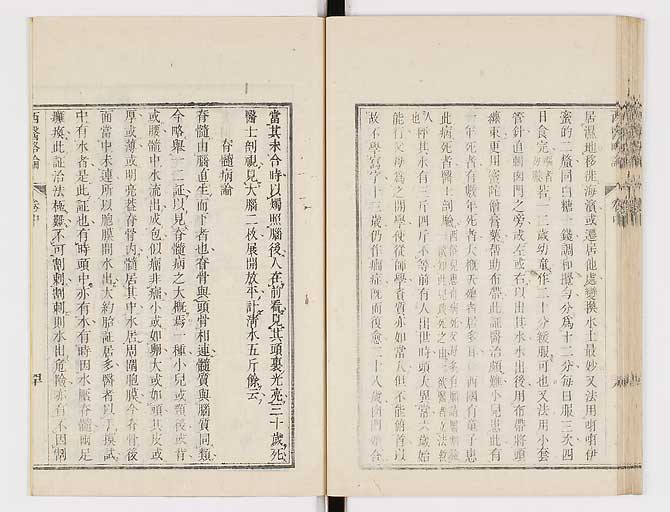 居濕地移徙海濱或遷居他處變換水土最妙又法用喇喇伊
蜜的二釐同白糖一錢調和攪勻分為十二分每日服三次四
日食完 若一二歲幼童作二十分緩服可也又法用小套
管針直刺囟門之旁或左或右以出其水水出後用布帶將頭
纏束更用 膏藥帮助布帶此証醫治頗難小兒患此有
一年死者有數年死者大概天殤者居多 西國有童子患
此病死者醫士剖驗
人 稱其水有三斤四斤不等前有人出世時頭大異常六歲始
能行父母為之開學使從師學資質亦如常人但不能俯首以
故不學寫字十三歲仍作癇症既而復愈三十八歲囟門始合
當其未合時以燭照腦後人在前看見其頭裏光亮三十歲死
醫士剖視見大腦二枚展開放平計清水五斤餘云
脊髓病論
脊髓由腦直生而下者也脊骨與頭骨相連髓質與腦質同類
今略舉一二証以見脊髓病之大概焉一種小兒或頸後或背
或腰髓中水流出成包似瘤非瘤小或如卵大或如頭其皮或
厚或薄或明亮蓋脊骨內髓居其中水居周圍胞膜亦今脊骨後
面當中未連所以胞膜間水出大約胎誌居多醫者以手摸試
中有水者是此証也有時頭中亦有水有時因水壓脊髓兩足
癱瘓此証治法極難不可割刺割刺則水出危險亦有不因割
西醫畧論
卷中